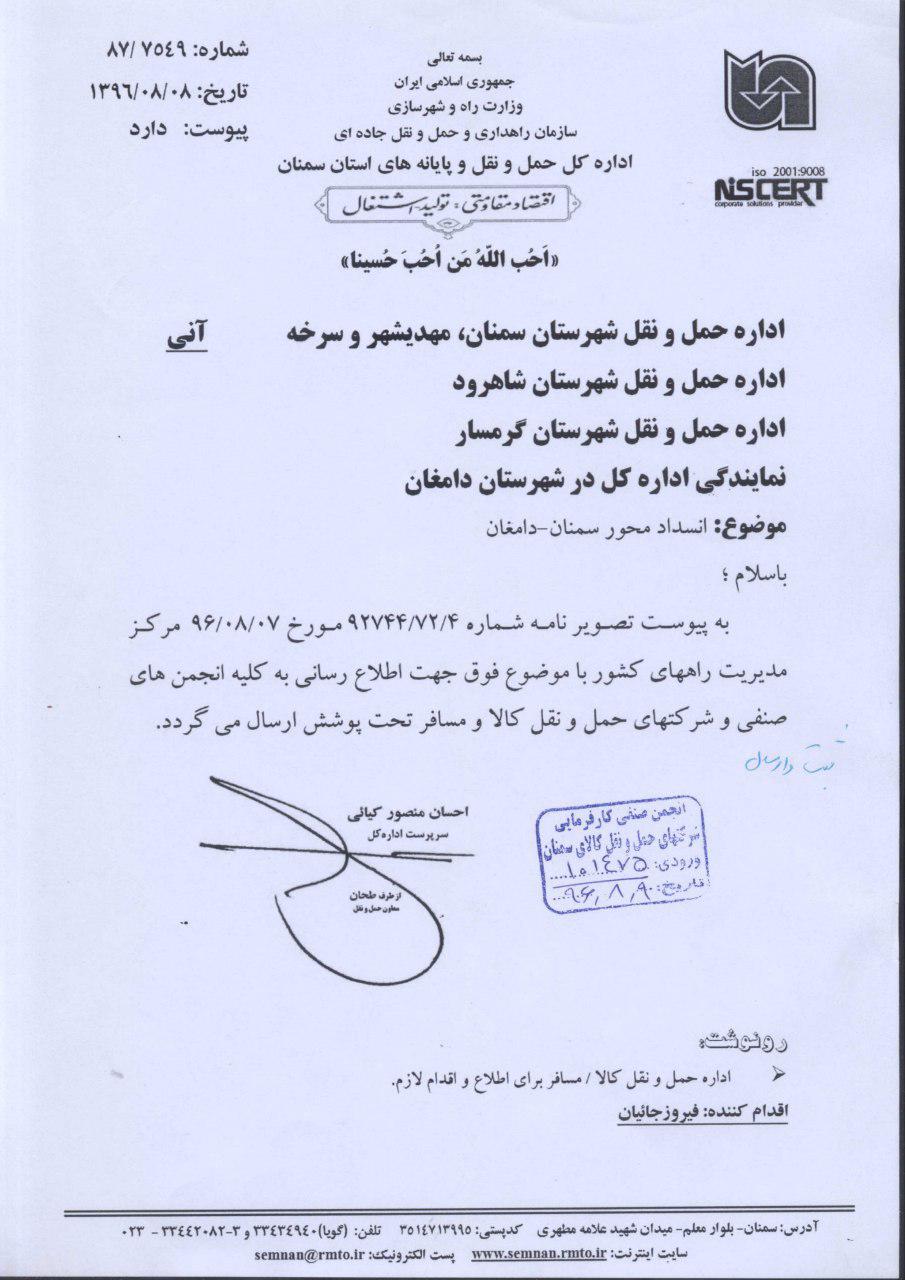 شماره: ۸۷/۷۵٤۹
تاریخ: ۱۳۹٦/۰۸/۰۸
پیوست: دارد
بسمه تعالی
جمهوری اسلامی ایران
وزارت راه و شهرسازی
سازمان راهداری و حمل و نقل جاده ای
اداره کل حمل و نقل و پایانه های استان سمنان
اقتصاد مقاومتی: تولید - اشتغال
«اَحُب اللّهُ مَن اُحُبَ حُسینا»
iso 2001:9008
NISCERT
corporate solutions provider
اداره حمل و نقل شهرستان سمنان، مهدیشهر و سرخه
آنی
اداره حمل و نقل شهرستان شاهرود
اداره حمل و نقل شهرستان گرمسار
نمایندگی اداره کل در شهرستان دامغان
موضوع: انسداد محور سمنان-دامغان
باسلام ؛
به پیوست تصویر نامه شماره ۹۲۷۴۴/۷۲/۴ مورخ ۹۶/۰۸/۰۷ مرکز
مدیریت راههای کشور با موضوع فوق جهت اطلاع رسانی به کلیه انجمن های
صنفی و شرکتهای حمل و نقل کالا و مسافر تحت پوشش ارسال می گردد.
ثبت و ارسال
احسان منصور کیائی
سرپرست اداره کل
از طرف طحان
معاون حمل و نقل
انجمن صنفی کارفرمایی
شرکتهای حمل و نقل کالای سمنان
ورودی: ۱۰۱٤۷۵
تاریخ: ۹۶/۸/۹
رونوشت:
اداره حمل و نقل کالا / مسافر برای اطلاع و اقدام لازم.
اقدام کننده: فیروزجائیان
آدرس: سمنان- بلوار معلم- میدان شهید علامه مطهری کدپستی: ۳۵۱٤۷۱۳۹۹۵ تلفن: (گویا)۳۳٤۳٤۹٤۰ و ۳-۳۳٤٤۲۰۸۲ - ۰۲۳
سایت اینترنت: www.semnan.rmto.ir پست الکترونیک: semnan@rmto.ir